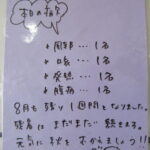 本日の指?
↓ 風邪 … 1名
↓ 咳 … 1名
↓ 発熱 … 1名
↓ 腹痛 … 1名
8月も残り1週間となりました。
残暑はまだまだ続きます。
元気に秋をむかえましょう!!